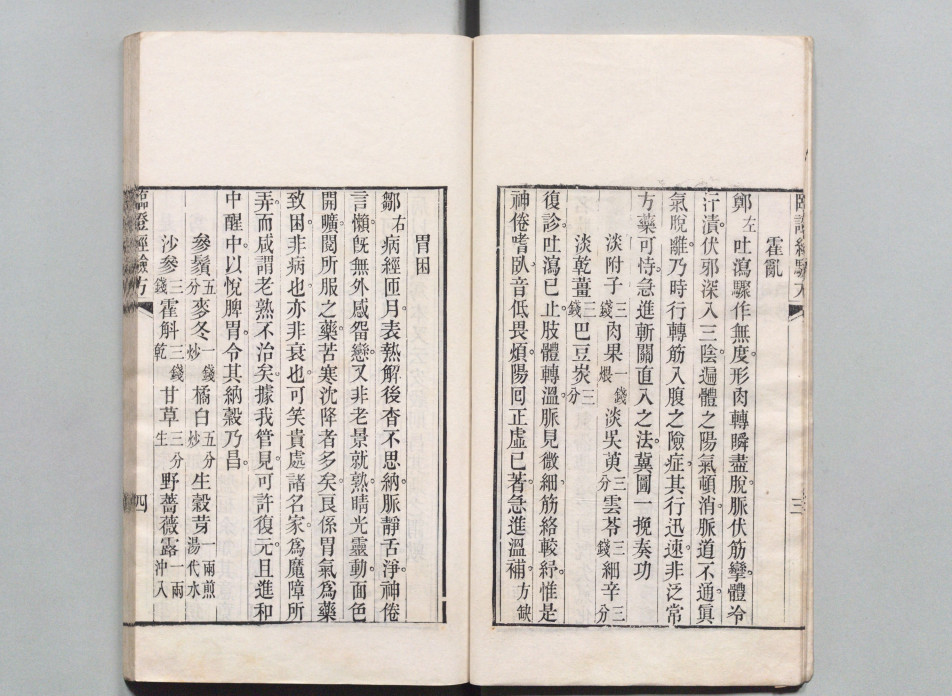 臨證經驗方
三
霍亂
鄭左吐瀉驟作無度。形肉轉瞬盡脫。脈伏筋攣。體冷
汗漬。伏邪深入三陰。遍體之陽氣頓消。脈道不通。眞
氣脫離。乃時行轉筋入腹之險症。其行迅速。非泛常
方藥可恃。急進斬關直入之法。冀圖一挽奏功
淡附子三錢 肉果一錢煨 淡吳萸三分 雲苓三錢 細辛三分
淡乾薑三錢 巴豆炭三分
復診。吐瀉已止。肢體轉溫。脈見微細。筋絡較紓。惟是
神倦嗜臥。音低畏煩。陽回正虛已著。急進溫補。方缺
胃困
鄒右病經匝月。表熱解後。杳不思納。脈靜舌淨。神倦
言懶。旣無外感畱戀。又非老景就熟。睛光靈動。面色
開曠。閱所服之藥。苦寒沈降者多矣。良係胃氣爲藥
致困。非病也。亦非衰也。可笑貴處諸名家。爲魔障所
弄。而咸謂老熟不治矣。據我管見。可許復元。且進和
中醒中。以悅脾胃。令其納穀乃昌。
參鬚五分 麥冬一錢炒 橘白五分炒 生穀芽一兩煎湯代水
沙參三錢 霍斛三錢乾 甘草三分生 野薔薇露一兩沖入
臨證經驗方
四